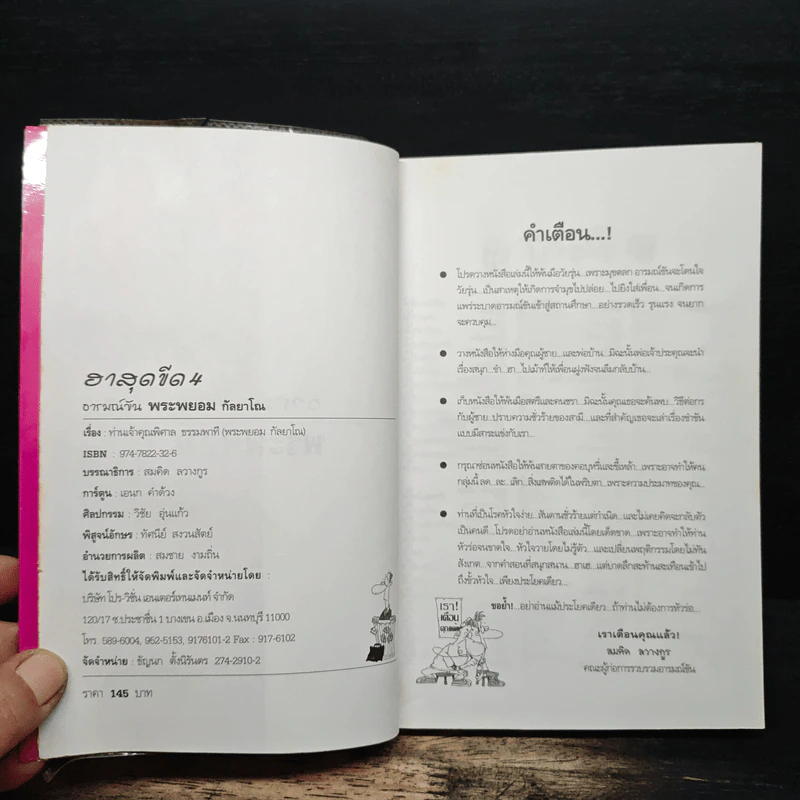 ฮาสุดขีด 4
อารมณ์ขัน พระพยอม กัลยาโณ
เรื่อง : ท่านเจ้าคุณพิศาล ธรรมพาที (พระพยอม กัลยาโณ)
ISBN : 974-7822-32-6
บรรณาธิการ : สมคิด ลวางกูร
การ์ตูน : เอนก คำด้วง
ศิลปกรรม : วิชัย อุ่นแก้ว
พิสูจน์อักษร : ทัศนีย์ สงวนสัตย์
อำนวยการผลิต : สมชาย งามถิ่น
ได้รับสิทธิ์ให้จัดพิมพ์และจัดจำหน่ายโดย :
บริษัท โปร-วิชั่น เอนเตอร์เทนเมนท์ จำกัด
120/17 ซ.ประชาชื่น 1 บางเขน อ.เมือง จ.นนทบุรี 11000
โทร. 589-6004, 952-5153, 9176101-2 Fax : 917-6102
จัดจำหน่าย : ธัญนภ ตั้งนิรันตร 274-2910-2
ราคา 145 บาท
คำเตือน...!
● โปรดวางหนังสือเล่มนี้ให้พ้นมือวัยรุ่น...เพราะมุขตลก อารมณ์ขันจะโดนใจ
วัยรุ่น...เป็นสาเหตุให้เกิดการจำมุขไปปล่อย...ไปยิงใส่เพื่อน...จนเกิดการ
แพร่ระบาดอารมณ์ขันเข้าสู่สถานศึกษา...อย่างรวดเร็ว รุนแรง จนยาก
จะควบคุม...
● วางหนังสือให้ห่างมือคุณผู้ชาย...และพ่อบ้าน...มิฉะนั้นพ่อเจ้าประคุณจะนำ
เรื่องสนุก...ขำ...ฮา...ไปเม้าท์ให้เพื่อนฝูงฟังจนลืมกลับบ้าน...
● เก็บหนังสือให้พ้นมือสตรีและคนชรา...มิฉะนั้นคุณเธอจะค้นพบ...วิธีต่อกร
กับผู้ชาย...ปราบความชั่วร้ายของสามี...และที่สำคัญเธอจะเล่าเรื่องขำขัน
แบบมีสาระแข่งกับเรา...
● กรุณาซ่อนหนังสือให้พ้นสายตาของคอบุหรี่และขี้เหล้า...เพราะอาจทำให้คน
กลุ่มนี้ ลด...ละ...เลิก...สิ่งเสพติดได้ในพริบตา...เพราะความประมาทของคุณ...
● ท่านที่เป็นโรคหัวใจง่าย...สันดานชั่วร้ายแต่กำเนิด...และไม่เคยคิดจะกลับตัว
เป็นคนดี...โปรดอย่าอ่านหนังสือเล่มนี้โดยเด็ดขาด...เพราะอาจทำให้ท่าน
หัวร่อจนขาดใจ...หัวใจวายโดยไม่รู้ตัว...และเปลี่ยนพฤติกรรมโดยไม่ทัน
สังเกต...จากคำสอนที่สนุกสนาน...ฮาเฮ...แต่บาดลึกสะท้านสะเทือนเข้าไป
ถึงขั้วหัวใจ...เพียงประโยคเดียว...
ขอย้ำ!...อย่าอ่านแม้ประโยคเดียว...ถ้าท่านไม่ต้องการหัวร่อ...
เรา!
เตือน
คุณแล้ว
เราเตือนคุณแล้ว!
สมคิด ลวางกูร
คณะผู้ก่อการรวบรวมอารมณ์ขัน